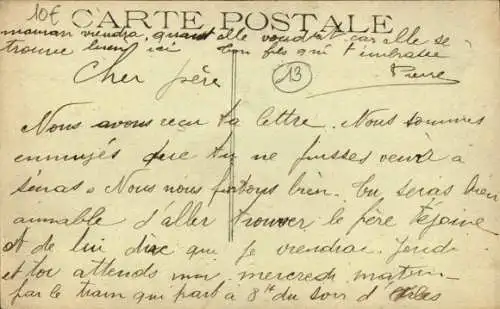 10€
CARTE POSTALE
maman viendra, quant elle voudrat car elle se
trouve bien ici Ton fils qui t'embrasse
Pierre
13
Cher père
Nous avons reçu ta lettre. Nous sommes
ennuyés que tu ne puisses venir a
Sénas. Nous nous portons bien. Tu serais bien
aimable d'aller trouver le père Téjaine
et de lui dire que je viendrai Jeudi
et toi attends moi mercredi matin
par le train qui part à 8h du soir d'Arles